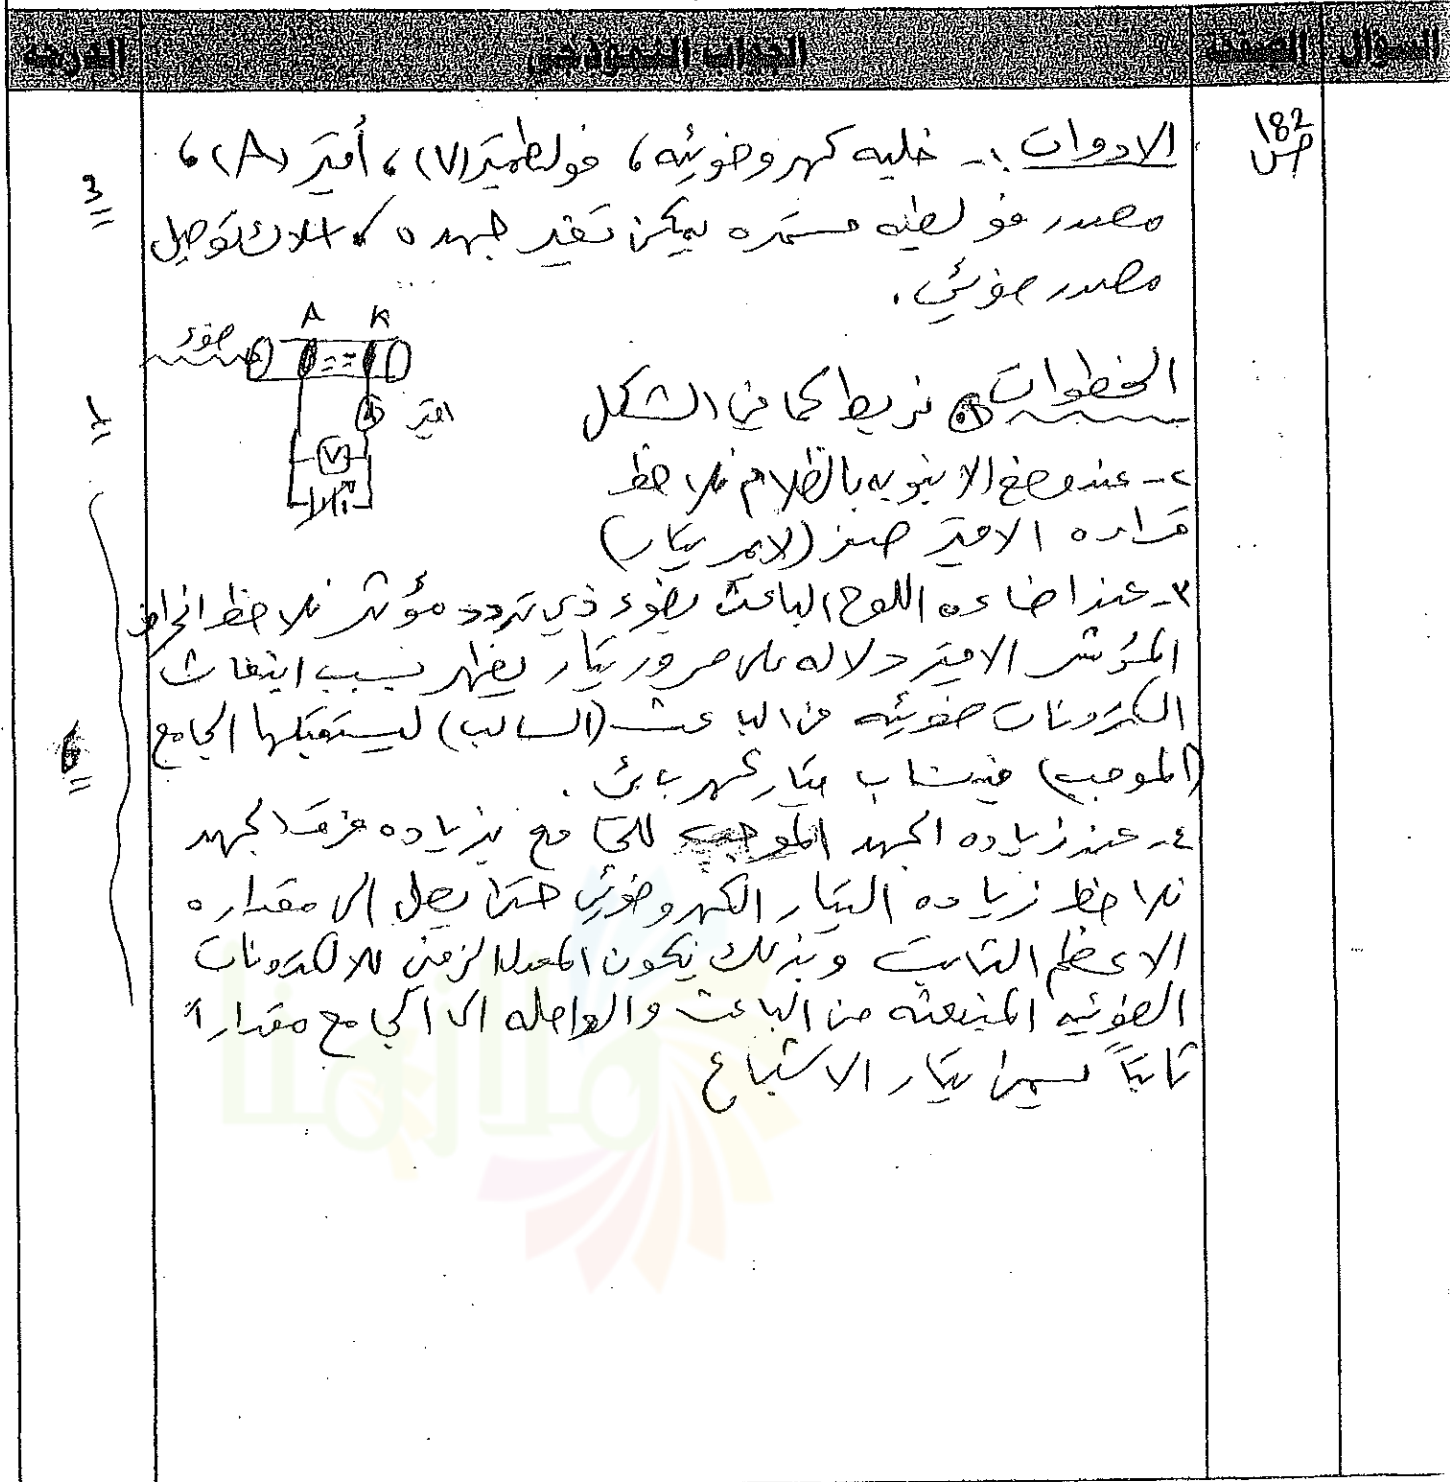 السؤال الصفحة الجواب النموذجي الدرجة
182
ص
الادوات :- خليه كهروضوئيه ، فولطميتر (V) ، أميتر (A) ،
مصدر فولطيه مستمره يمكن تغير جهده ، اسلاك توصيل
مصدر ضوئي .
3
A K
ضوء
الخطوات ١. نربط كما في الشكل
اميتر
A
V
٢- عند وضع الانبوبه بالظلام نلاحظ
قراءه الاميتر صفر (لايمر تيار)
٣- عند اضاءه اللوح الباعث بضوء ذي تردد مؤثر نلاحظ انحراف
المؤشر الاميتر دلاله على مرور تيار يظهر بسبب انبعاث
الكترونات ضوئيه من الباعث (السالب) ليستقبلها الجامع
(الموجب) فينساب تيار كهربائي .
6
٤- عند زياده الجهد الموجب للجامع بزياده فرق الجهد
نلاحظ زياده التيار الكهروضوئي حتى يصل الى مقداره
الاعظم الثابت وبذلك يكون المعدل الزمني للالكترونات
الضوئيه المنبعثه من الباعث والواصله الى الجامع مقداراً
ثابتاً يسمى تيار الاشباع
ملازمنا